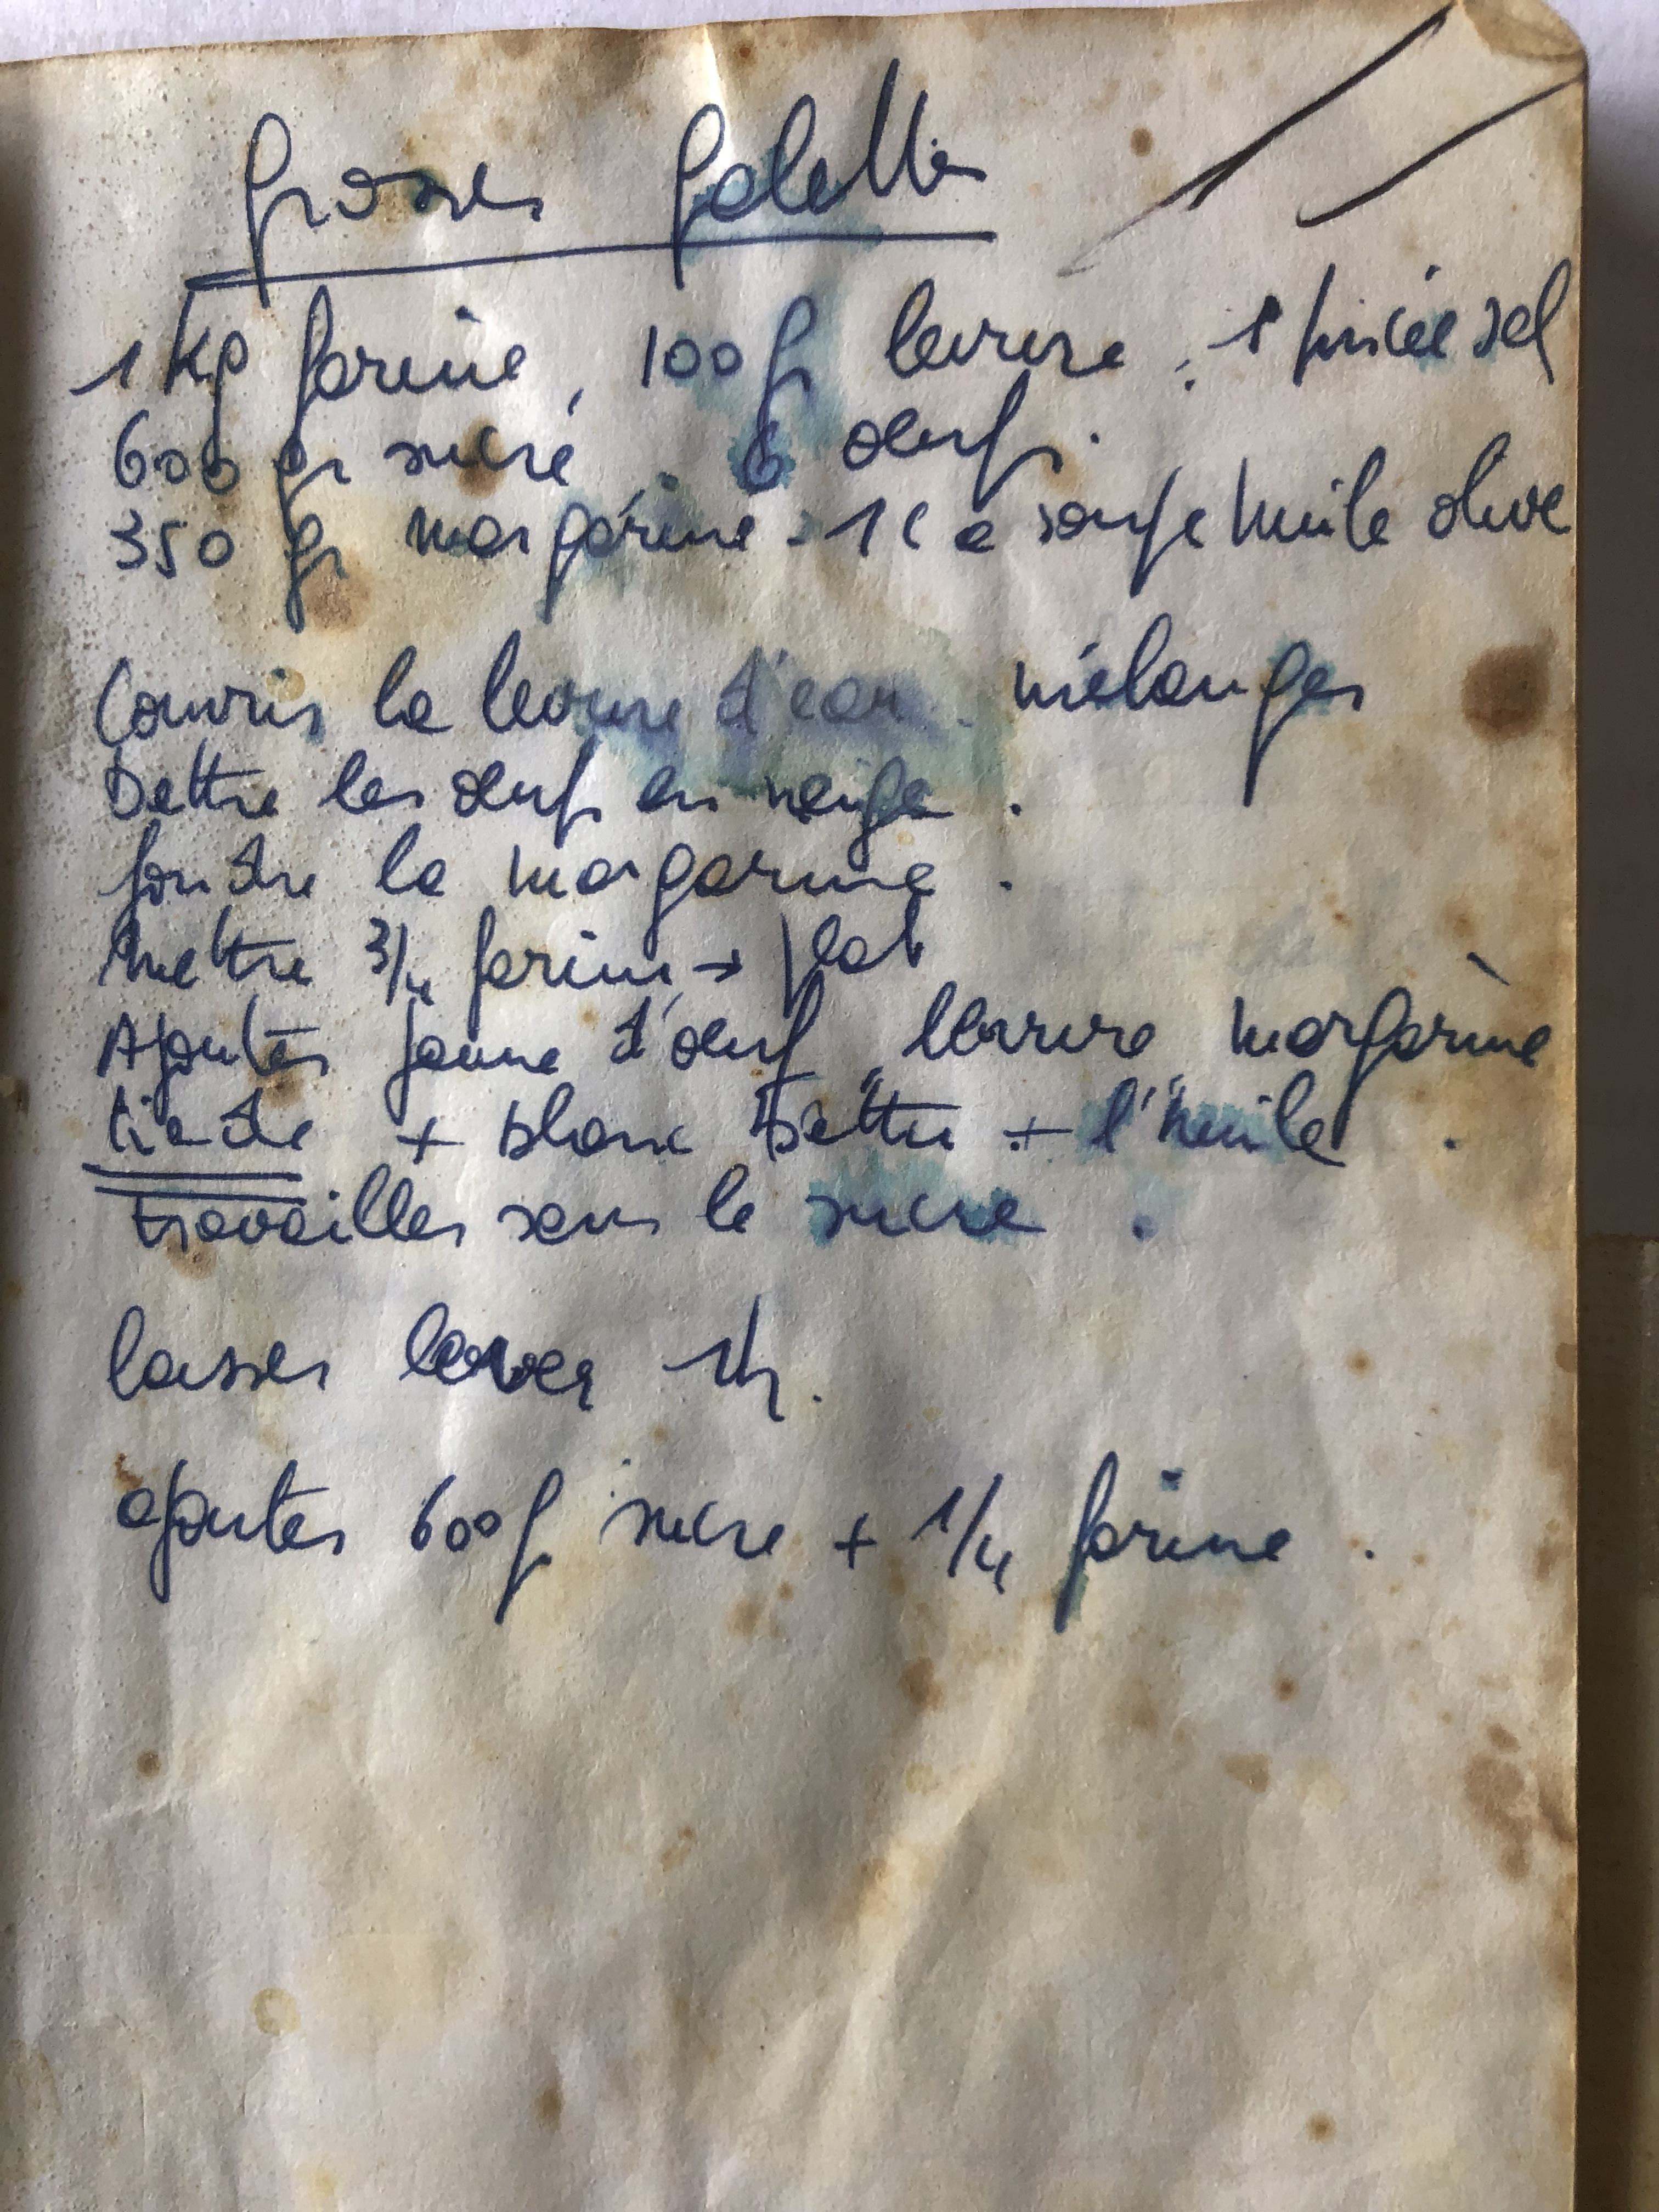 Grosses Galettes
1 Kg farine, 100 gr levure, 1 pincée sel
600 gr sucre, 6 oeufs.
350 gr margarine. 1 C a soupe huile olive
Couvrir la levure d'eau. mélanger
Battre les oeufs en neige.
fondre la margarine.
Mettre 3/4 farine → plat
Ajouter jaune d'oeuf, levure margarine
tiède + blanc battu + l'huile.
travailler sans le sucre.
laisser lever 1h.
ajouter 600g sucre + 1/4 farine.